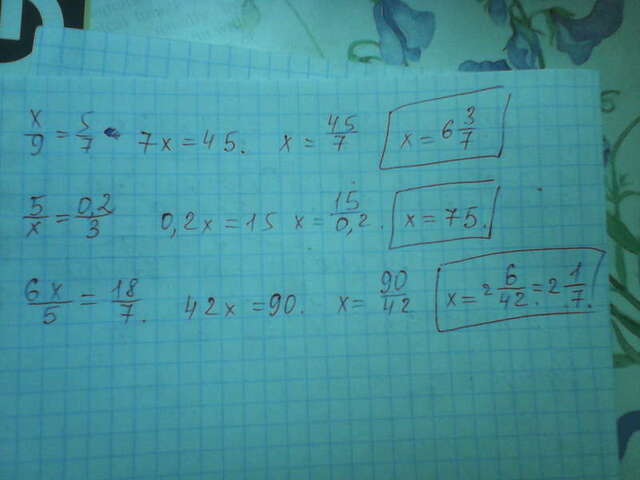 x/9 = 5/7 7x = 45. x = 45/7 x = 6 3/7.
5/x = 0,2/3 0,2x = 15 x = 15/0,2. x = 75.
6x/5 = 18/7. 42x = 90. x = 90/42 x = 2 6/42. = 2 1/7.